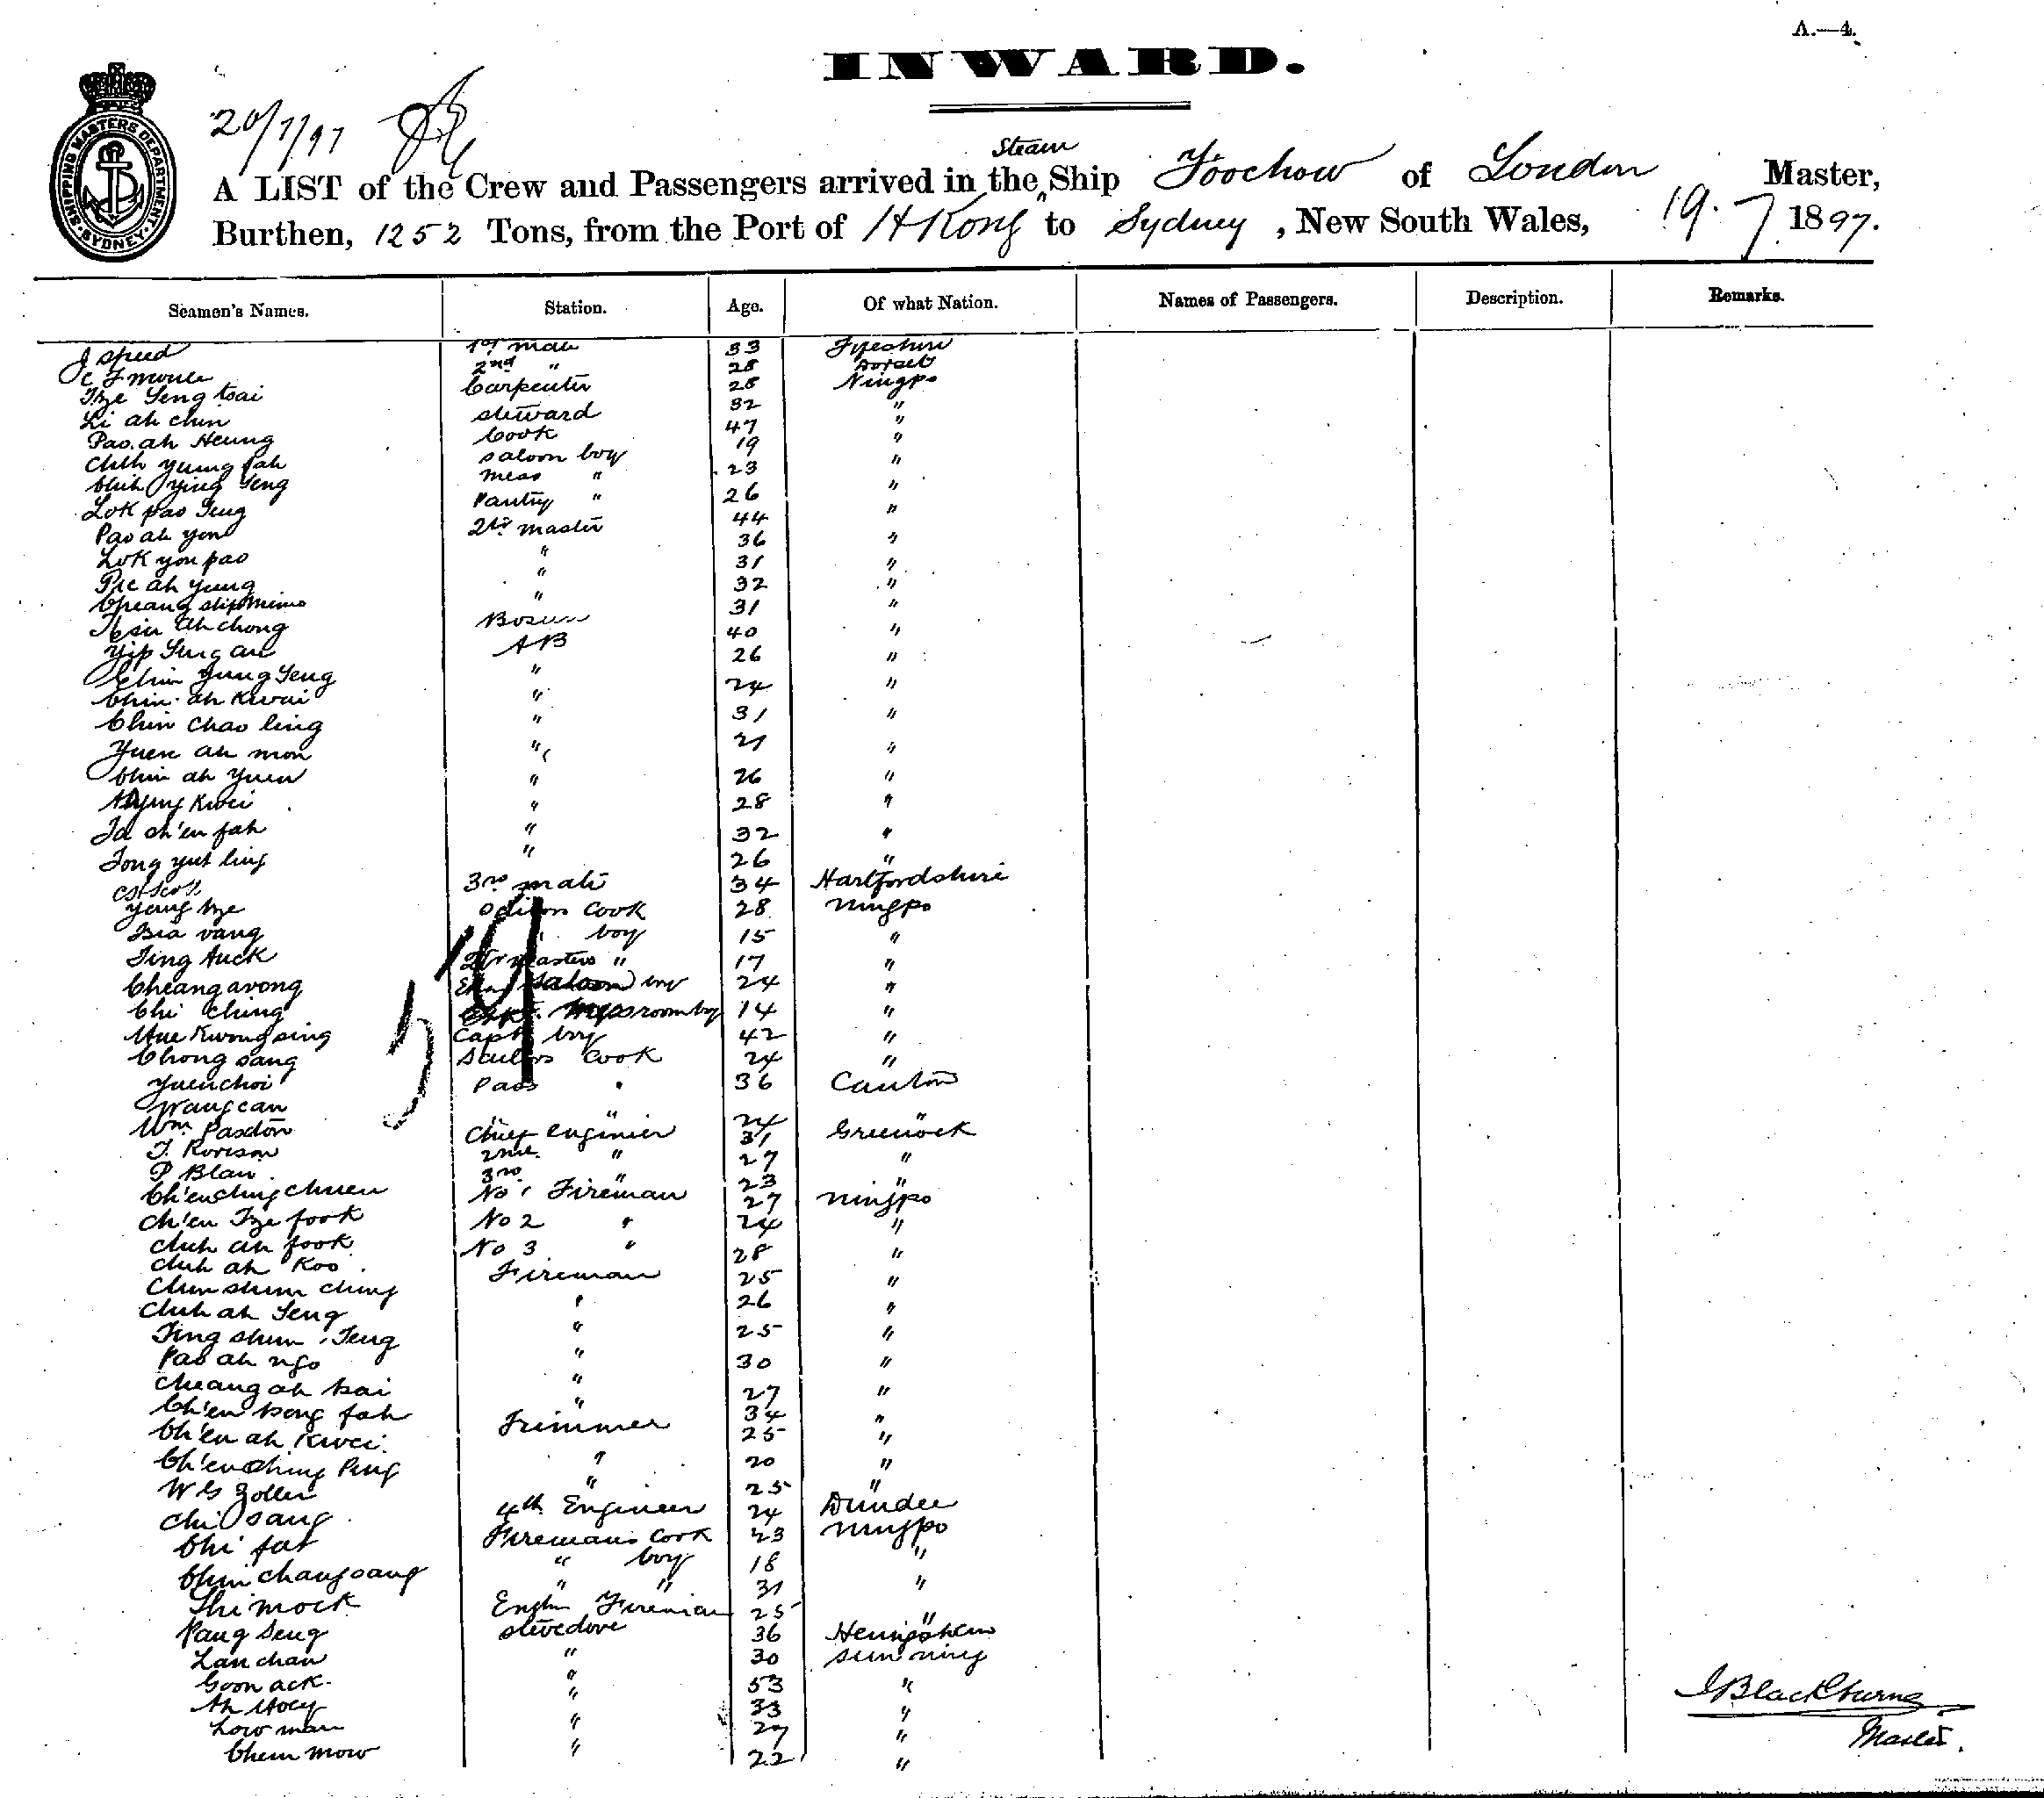 A.—4.
INWARD.
SHIPPING MASTERS DEPARTMENT. SYDNEY.
20/7/97
Steam
A LIST of the Crew and Passengers arrived in the Ship Foochow of London Master,
Burthen, 1252 Tons, from the Port of H Kong to Sydney, New South Wales, 19. 7 1897.
Seamen's Names. Station. Age. Of what Nation. Names of Passengers. Description. Remarks.
J Speed 1st Mate 33 Fifeshire
2nd " 28 Dorset
Tze Seng tsai Carpenter 28 Ningpo
Li ah chin steward 32 "
Pao ah Heung Cook 47 "
Chih yung fah saloon boy 19 "
Chih ying Seng mess " 23 "
Lok pao Seng Pantry " 26 "
Pao ah yon Qtr master 44 "
Lok you pao " 36 "
ah yung " 31 "
Cheang " 32 "
ah chong Bosun 31 "
Yip Sung an AB 40 "
Chin yung Seng " 26 "
Chin ah Kwai " 24 "
Chin Chao ling " 31 "
Yuen ah mon " 21 "
Chin ah Yuen " 26 "
Kwei " 28 "
ch'en fah " 32 "
Tong yut ling " 26 "
Scott 3rd mate 34 Hartfordshire
Yang tze Cook 28 Ningpo
Tsia vang boy 15 "
Ting Auck Qtr masters " 17 "
Cheang avong saloon boy 24 "
Chi Ching messroom boy 14 "
Kwong sing Capts boy 42 "
Chong sang Sailors Cook 24 "
Yuen choi Pass " 36 Canton
Wang can " 24 "
Wm Paxton Chief engineer 31 Greenock
T. Rorison 2nd " 27 "
P Blair 3rd " 23 "
Ch'en ching chuen No 1 Fireman 27 Ningpo
Ch'en Tze fook No 2 " 24 "
Chih ah fook No 3 " 28 "
Chih ah Koo Fireman 25 "
Chin shun ching " 26 "
Chih ah Seng " 25 "
Ting shun Seng " 30 "
Pao ah ngo " 27 "
Cheang ah tsai " 34 "
Ch'en tsong fah Trimmer 25 "
Ch'en ah Kwei " 20 "
Ch'en Ching Ping " 25 "
W G Zoller 4th Engineer 24 Dundee
Chi sang Firemans Cook 23 Ningpo
Chi fat " boy 18 "
Chin chang sang " " 31 "
Shi mock Fireman 25 "
Pang Seng stevedore 36
Lan chan " 30 Sun ning
Goon ack " 53 "
Ah Hoey " 33 "
Low man " 27 "
Chem mow " 22 "
59
J Blackburne
Master.